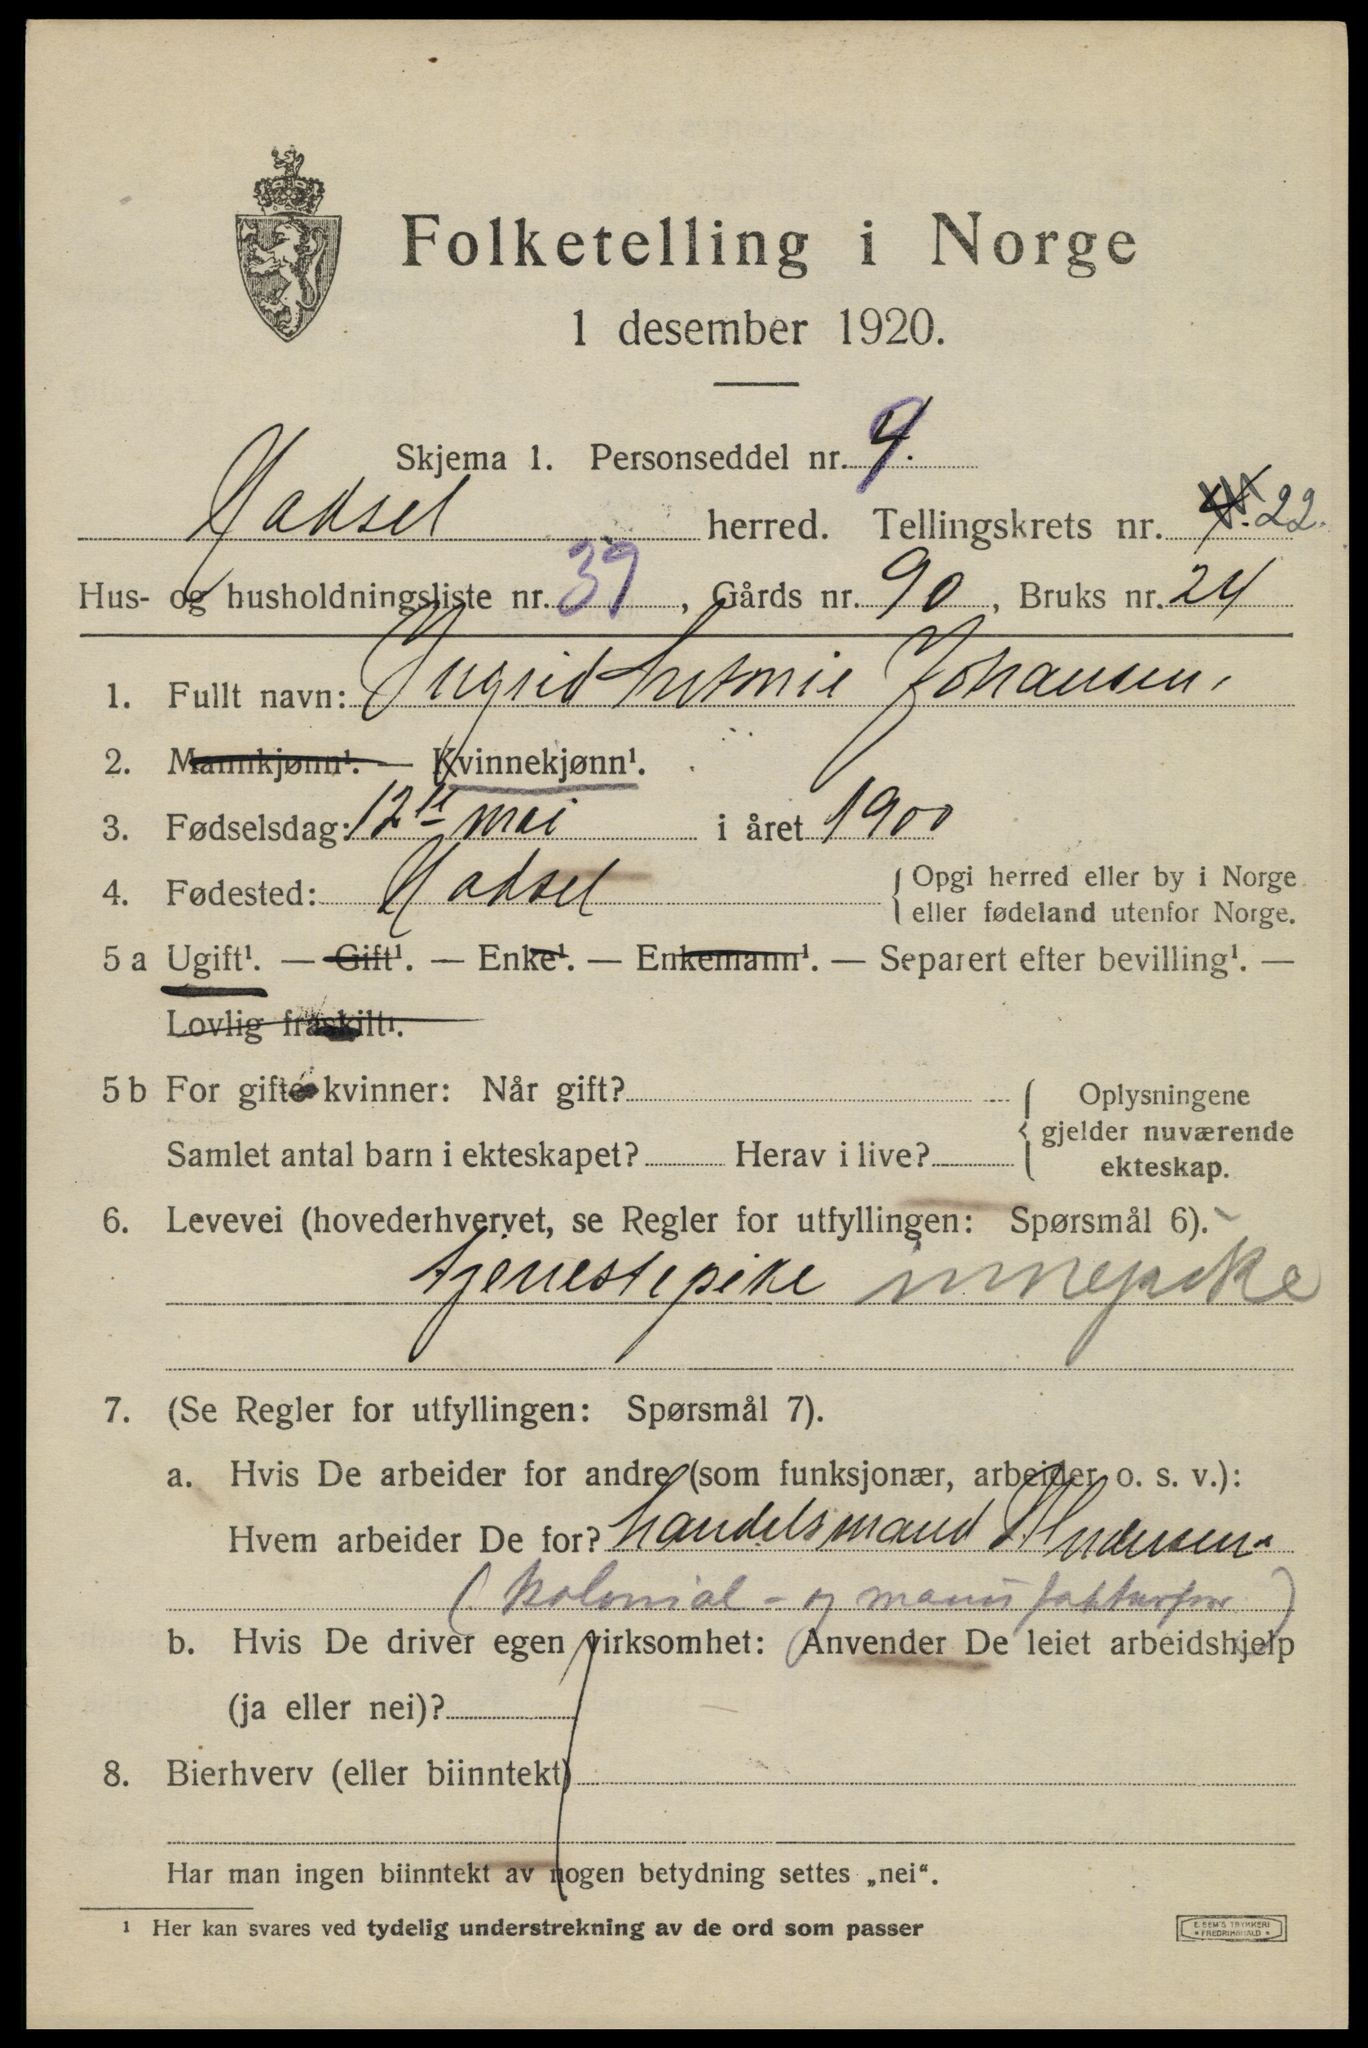 Folketelling i Norge
1 desember 1920.
Skjema 1. Personseddel nr. 9.
Hadsel herred. Tellingskrets nr. 4. 22.
Hus- og husholdningsliste nr. 39, Gårds nr. 90, Bruks nr. 24
1. Fullt navn: Ingrid Antonie Johansen.
2. Mannkjønn¹. — Kvinnekjønn¹.
3. Fødselsdag: 12te mai i året 1900
4. Fødested: Hadsel { Opgi herred eller by i Norge
eller fødeland utenfor Norge.
5 a Ugift¹. — Gift¹. — Enke¹. — Enkemann¹. — Separert efter bevilling¹. —
Lovlig fraskilt¹.
5 b For gifte kvinner: Når gift? { Oplysningene
gjelder nuværende
Samlet antal barn i ekteskapet? Herav i live? ekteskap.
6. Levevei (hovederhvervet, se Regler for utfyllingen: Spørsmål 6).
tjenestepike innepike
7. (Se Regler for utfyllingen: Spørsmål 7).
a. Hvis De arbeider for andre (som funksjonær, arbeider o. s. v.):
Hvem arbeider De for? handelsmand Andersen
(kolonial- og manufakturforr)
b. Hvis De driver egen virksomhet: Anvender De leiet arbeidshjelp
(ja eller nei)?
8. Bierhverv (eller biinntekt)
Har man ingen biinntekt av nogen betydning settes „nei“.
¹ Her kan svares ved tydelig understrekning av de ord som passer
E. SEM'S TRYKKERI
* FREDRIKSHALD *